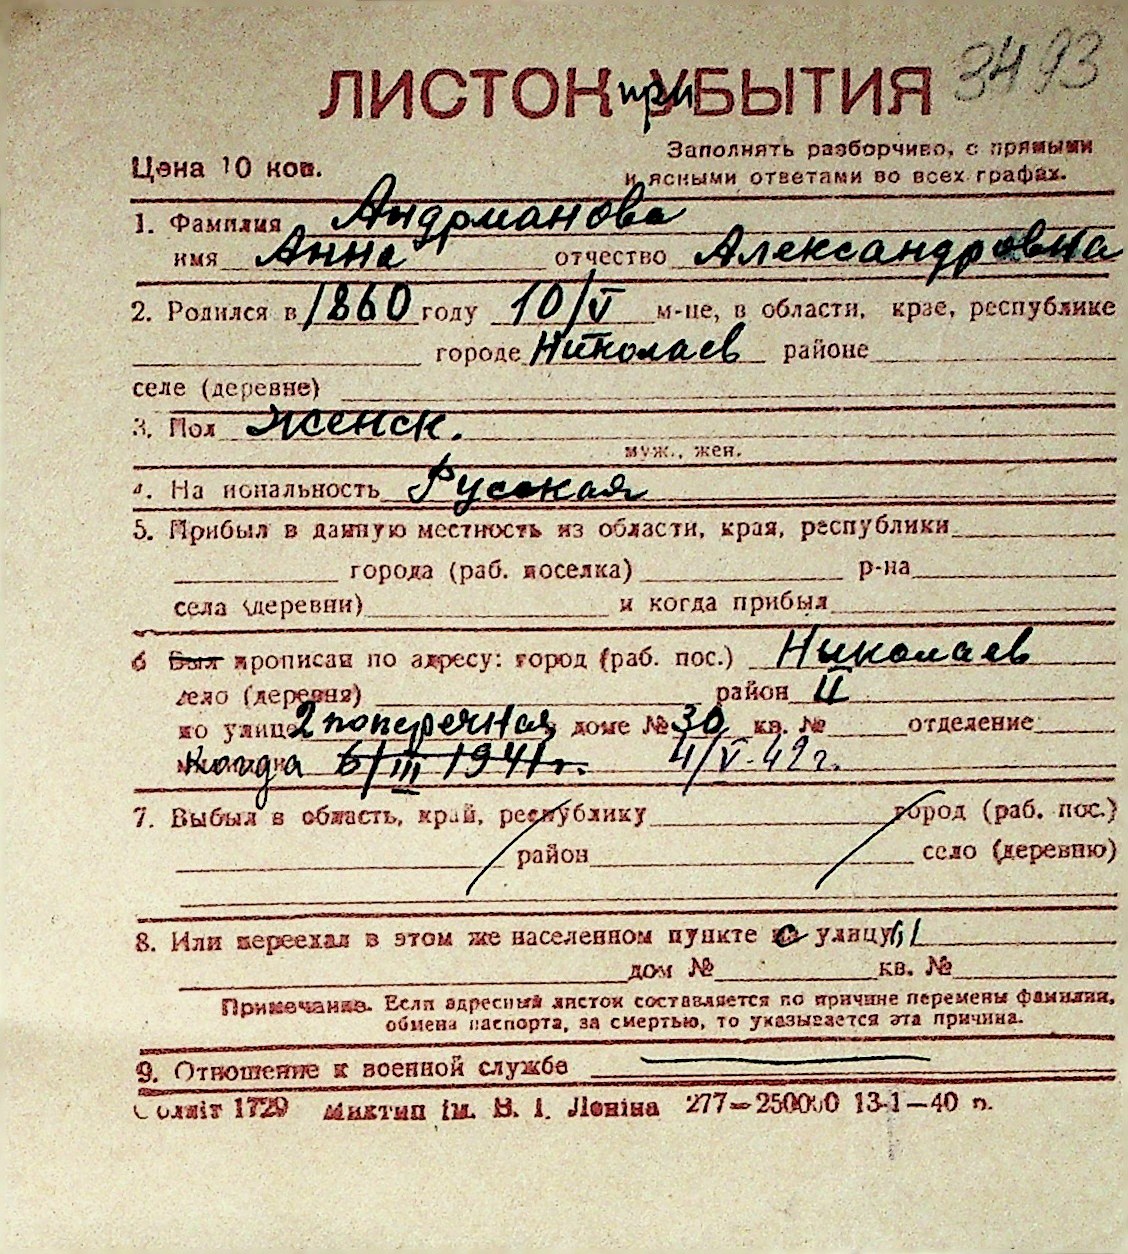 3493
ЛИСТОК при БЫТИЯ
Заполнять разборчиво, с прямыми
Цена 10 коп.
и ясными ответами во всех графах.
1. Фамилия Андрманова
имя Анна отчество Александровна
2. Родился в 1860 году 10/V м-це, в области, крае, республике
городе Николаев районе
селе (деревне)
3. Пол женск.
муж., жен.
4. На иональность Русская
5. Прибыл в данную местность из области, края, республики
города (раб. поселка) р-на
села (деревни) и когда прибыл
6 Был прописан по адресу: город (раб. пос.) Николаев
село (деревня) район II
по улице 2 поперечная доме № 30 кв. № отделение
когда 6/III 1941 г. 4/V-42 г.
7. Выбыл в область, край, республику город (раб. пос.)
район село (деревню)
8. Или переехал в этом же населенном пункте с улицы
дом № кв. №
Примечание. Если адресный листок составляется по причине перемены фамилии,
обмена паспорта, за смертью, то указывается эта причина.
9. Отношение к военной службе
Облліт 1729 Миктип ім. В. І. Леніна 277—250000 13-1—40 п.